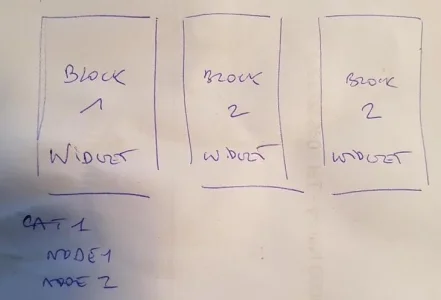 BLOCK BLOCK BLOCK
1 2 2
WIDGET WIDGET WIDGET
CAT 1
NODE 1
NODE 2